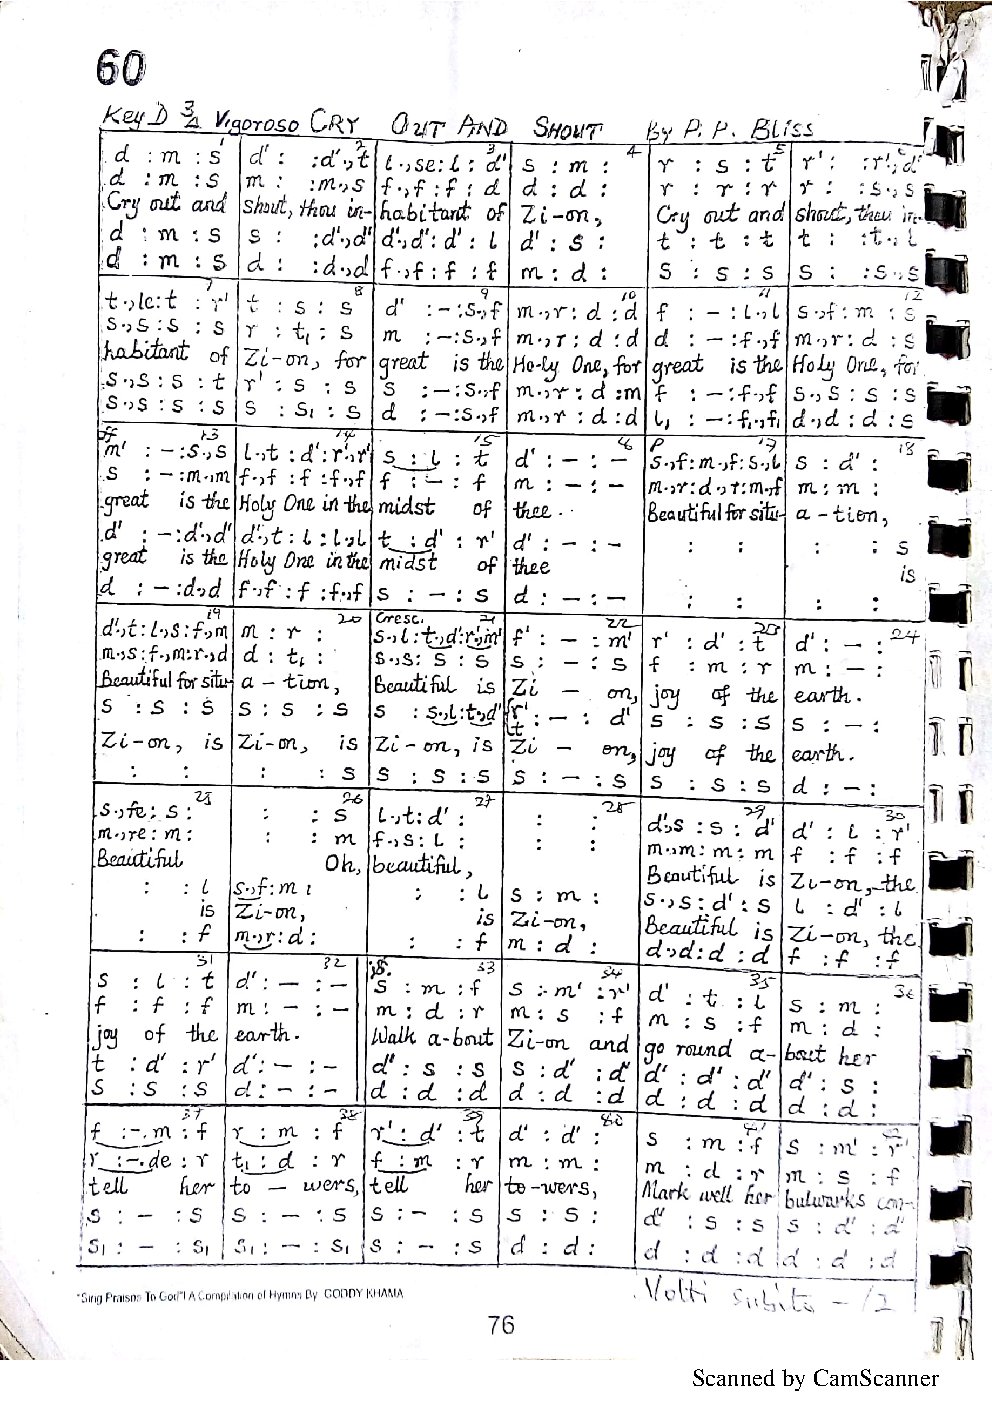 60
Key D 3/4 Vigoroso CRY OUT AND SHOUT By P. P. Bliss
1 2 3 4 5 6
d : m : s | d' : :d'.,t | l.,se:l : d' | s : m : | r : s : t | r' : :r'.,d'
d : m : s | m : :m.,s | f.,f : f : d | d : d : | r : r : r | r : :s.,s
Cry out and | shout, thou in- | habitant of | Zi-on, | Cry out and | shout, thou in-
d : m : s | s : :d'.,d' | d'.,d' : d' : l | d' : s : | t : t : t | t : :t.,l
d : m : s | d : :d.,d | f.,f : f : f | m : d : | s : s : s | s : :s.,s
7 8 9 10 11 12
t.,le:t : r' | t : s : s | d' : - :s.,f | m.,r : d : d | f : - :l.,l | s.,f : m : s
s.,s : s : s | r : t₁ : s | m : - :s.,f | m.,r : d : d | d : - :f.,f | m.,r : d : s
habitant of | Zi-on, for | great is the | Ho-ly One, for | great is the | Holy One, for
s.,s : s : t | r' : s : s | s : - :s.,f | m.,r : d :m | f : - :f.,f | s.,s : s : s
s.,s : s : s | s : s₁ : s | d : - :s.,f | m.,r : d : d | l₁ : - :f₁.,f₁ | d.,d : d : s
ff 13 14 15 16 p 17 18
m' : - :s.,s | l.,t : d' : r'.,r' | s : l : t | d' : - : - | s.,f:m.,f:s.,l | s : d' :
s : - :m.,m | f.,f : f :f.,f | f : - : f | m : - : - | m.,r:d.,r:m.,f | m : m :
great is the | Holy One in the | midst of | thee. | Beautiful for situ- | a-tion,
d' : - :d'.,d' | d'.,t : l : l.,l | t : d' : r' | d' : - : - | : : | : : s
great is the | Holy One in the | midst of | thee | | is
d : - :d.,d | f.,f : f :f.,f | s : - : s | d : - : - | : : | : :
19 20 Cresc. 21 22 23 24
d'.,t:l.,s:f.,m | m : r : | s.,l:t.,d':r'.,m' | f' : - :m' | r' : d' : t | d' : - :
m.,s:f.,m:r.,d | d : t₁ : | s.,s: s : s | s : - : s | f : m : r | m : - :
Beautiful for situ- | a-tion, | Beautiful is | Zi - on, | joy of the | earth.
s : s : s | s : s : s | s : s.,l:t.,d' | r' t : - : d' | s : s : s | s : - :
Zi-on, is | Zi-on, is | Zi-on, is | Zi - on, | joy of the | earth.
: : | : : s | s : s : s | s : - : s | s : s : s | d : - :
25 26 27 28 29 30
s.,fe : s : | : : s | l.,t : d' : | : : | d'.,s : s : d' | d' : l : r'
m.,re : m : | : : m | f.,s : l : | : : | m.,m : m : m | f : f : f
Beautiful | Oh, | beautiful, | | Beautiful is | Zi-on, the
: : l | s.,f : m : | : : l | s : m : | s.,s : d' : s | l : d' : l
is | Zi-on, | is | Zi-on, | Beautiful is | Zi-on, the
: : f | m.,r : d : | : : f | m : d : | d.,d : d : d | f : f : f
31 32 :S. 33 34 35 36
s : l : t | d' : - : - | s : m : f | s :- m' : r' | d' : t : l | s : m :
f : f : f | m : - : - | m : d : r | m : s : f | m : s : f | m : d :
joy of the | earth. | Walk a-bout | Zi-on and | go round a- | bout her
t : d' : r' | d' : - : - | d' : s : s | s : d' : d' | d' : d' : d' | d' : s :
s : s : s | d : - : - | d : d : d | d : d : d | d : d : d | d : d :
37 38 39 40 41 42
f :-.m : f | r : m : f | r' : d' : t | d' : d' : | s : m : f | s : m' : r'
r :-.de : r | t₁ : d : r | f : m : r | m : m : | m : d : r | m : s : f
tell her | to - wers, | tell her | to-wers, | Mark well her | bulwarks con-
s : - : s | s : - : s | s : - : s | s : s : | d' : s : s | s : d' : d'
s₁ : - : s₁ | s₁ : - : s₁ | s : - : s | d : d : | d : d : d | d : d : d
Volti subito - /2
"Sing Praises To God"! A Compilation of Hymns By GODDY KHAMA
76
Scanned by CamScanner